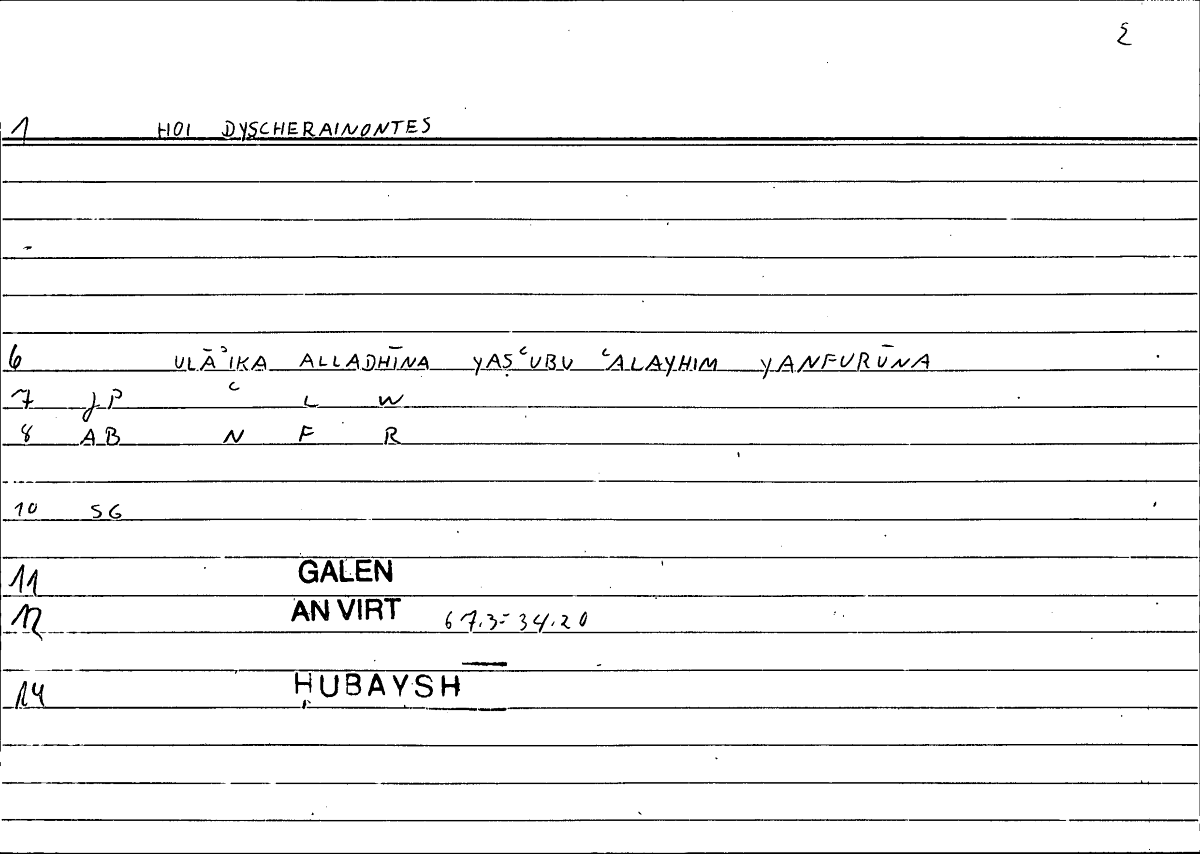 ξ
1 HOI DYSCHERAINONTES
6 ULĀʾIKA ALLADHĪNA YAṢʿUBU ʿALAYHIM YANFURŪNA
7 JP ʿ L W
8 AB N F R
10 SG
11 GALEN
12 AN VIRT 67.3= 34.20
14 ḤUBAYSH